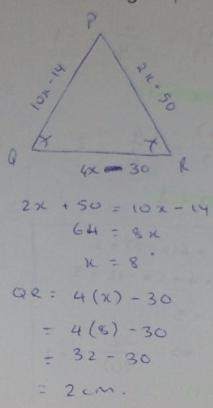 P
10x-14
2x+50
Q
R
4x - 30
2x + 50 = 10x - 14
64 = 8x
x = 8
QR = 4(x) - 30
= 4(8) - 30
= 32 - 30
= 2cm.